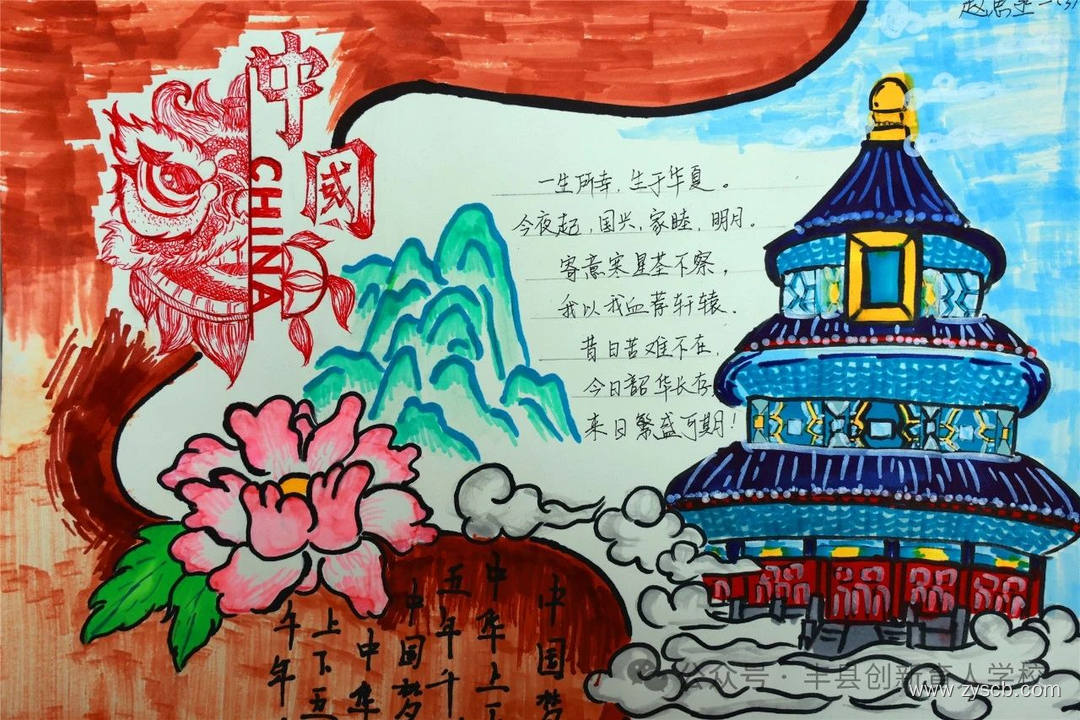 中國
CHINA
一生所幸，生于华夏。
今夜起，国兴，家睦，明月。
寄意寒星荃不察，
我以我血荐轩辕。
昔日苦难不在，
今日韶华长存
来日繁盛可期！
中国梦
中华上下
五年千
中国梦
中华
上下五
午年
公众号·丰县创新育人学校
www.zyscb.com